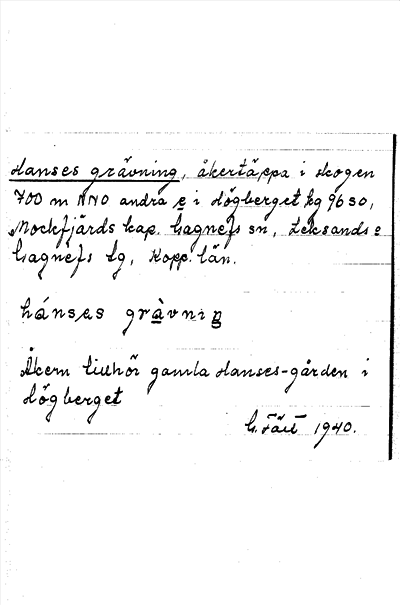 Hanses grävning, åkertäppa i skogen
700 m NNO andra e i Högberget kg 9630,
Mockfjärds kap. Gagnefs sn, Leksands o
Gagnefs tg, Kopp. län.
hánses gràvning
Åkern tillhör gamla Hanses-gården i
Högberget
G. 1940.